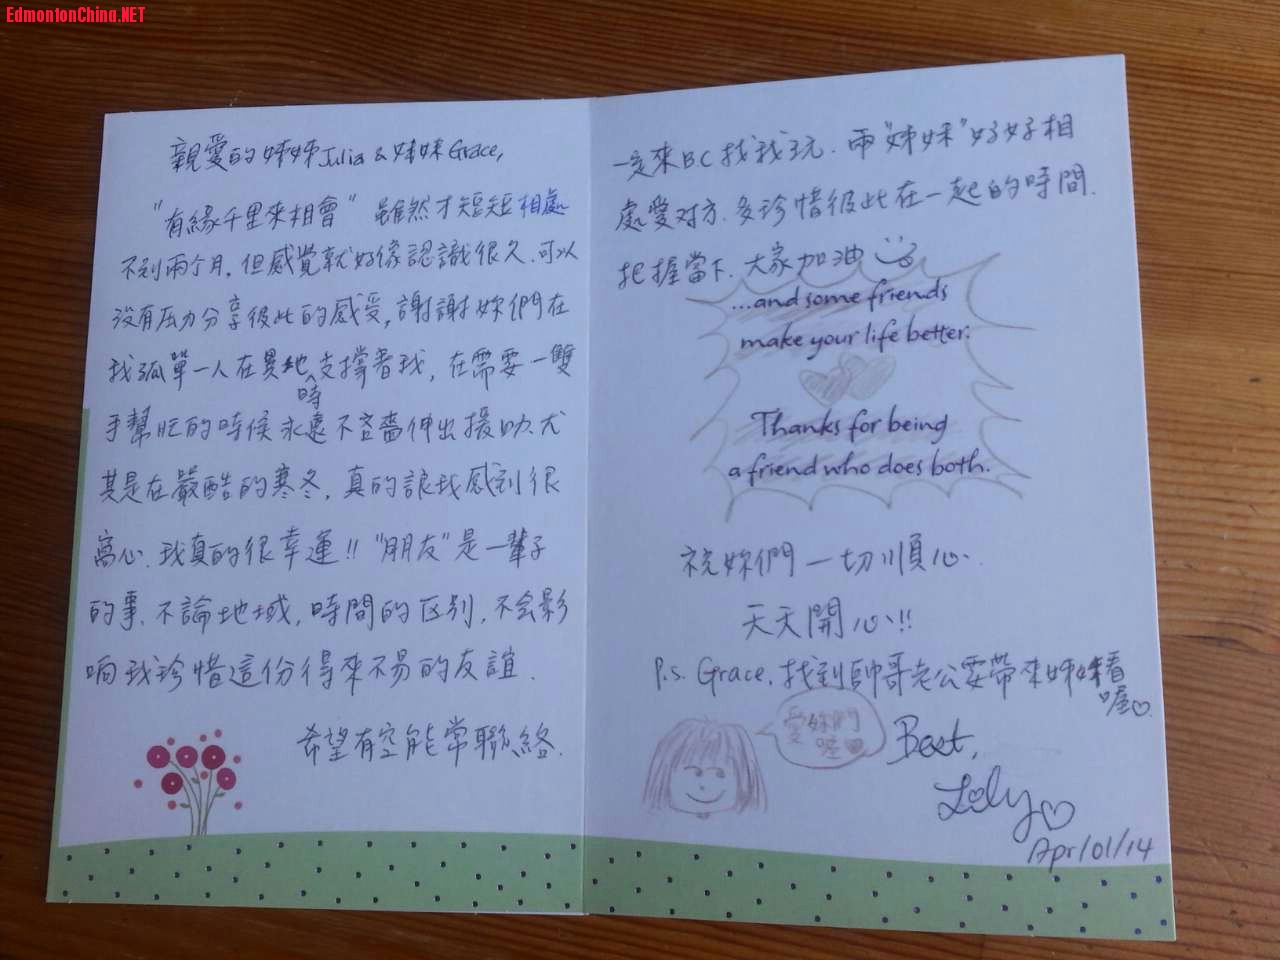 EdmontonChina.NET
親愛的姊姊Julia & 妹妹Grace,
"有緣千里來相會" 雖然才短短相處
不到兩个月, 但感覺就好像認識很久, 可以
沒有压力分享彼此的感受, 謝謝妳們在
我孤單一人在異地時支撐着我, 在需要一雙
手幫忙的時候永遠不吝嗇伸出援助, 尤
其是在嚴酷的寒冬, 真的讓我感到很
窩心. 我真的很幸運!! "朋友"是一輩子
的事, 不論地域, 時間的区别, 不会影
响我珍惜這份得來不易的友誼.
希望有空能常聯絡.
一定來BC找我玩. 兩"姊妹"好好相
處愛对方, 多珍惜彼此在一起的時間.
把握當下. 大家加油
...and some friends
make your life better.
Thanks for being
a friend who does both.
祝妳們一切順心.
天天開心!!
P.S. Grace, 找到帥哥老公要帶來姊姊看
喔♡
愛妳們
喔♥
Best,
Lily♡
Apr/01/14